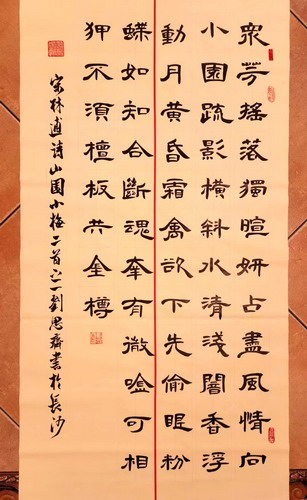 衆芳摇落獨暄妍占盡風情向
小園疏影横斜水清淺闇香浮
動月黄昏霜禽欲下先偷眼粉
蝶如知合斷魂幸有微吟可相
狎不須檀板共金樽
宋林逋诗山園小梅二首之一劉思齊書於長沙